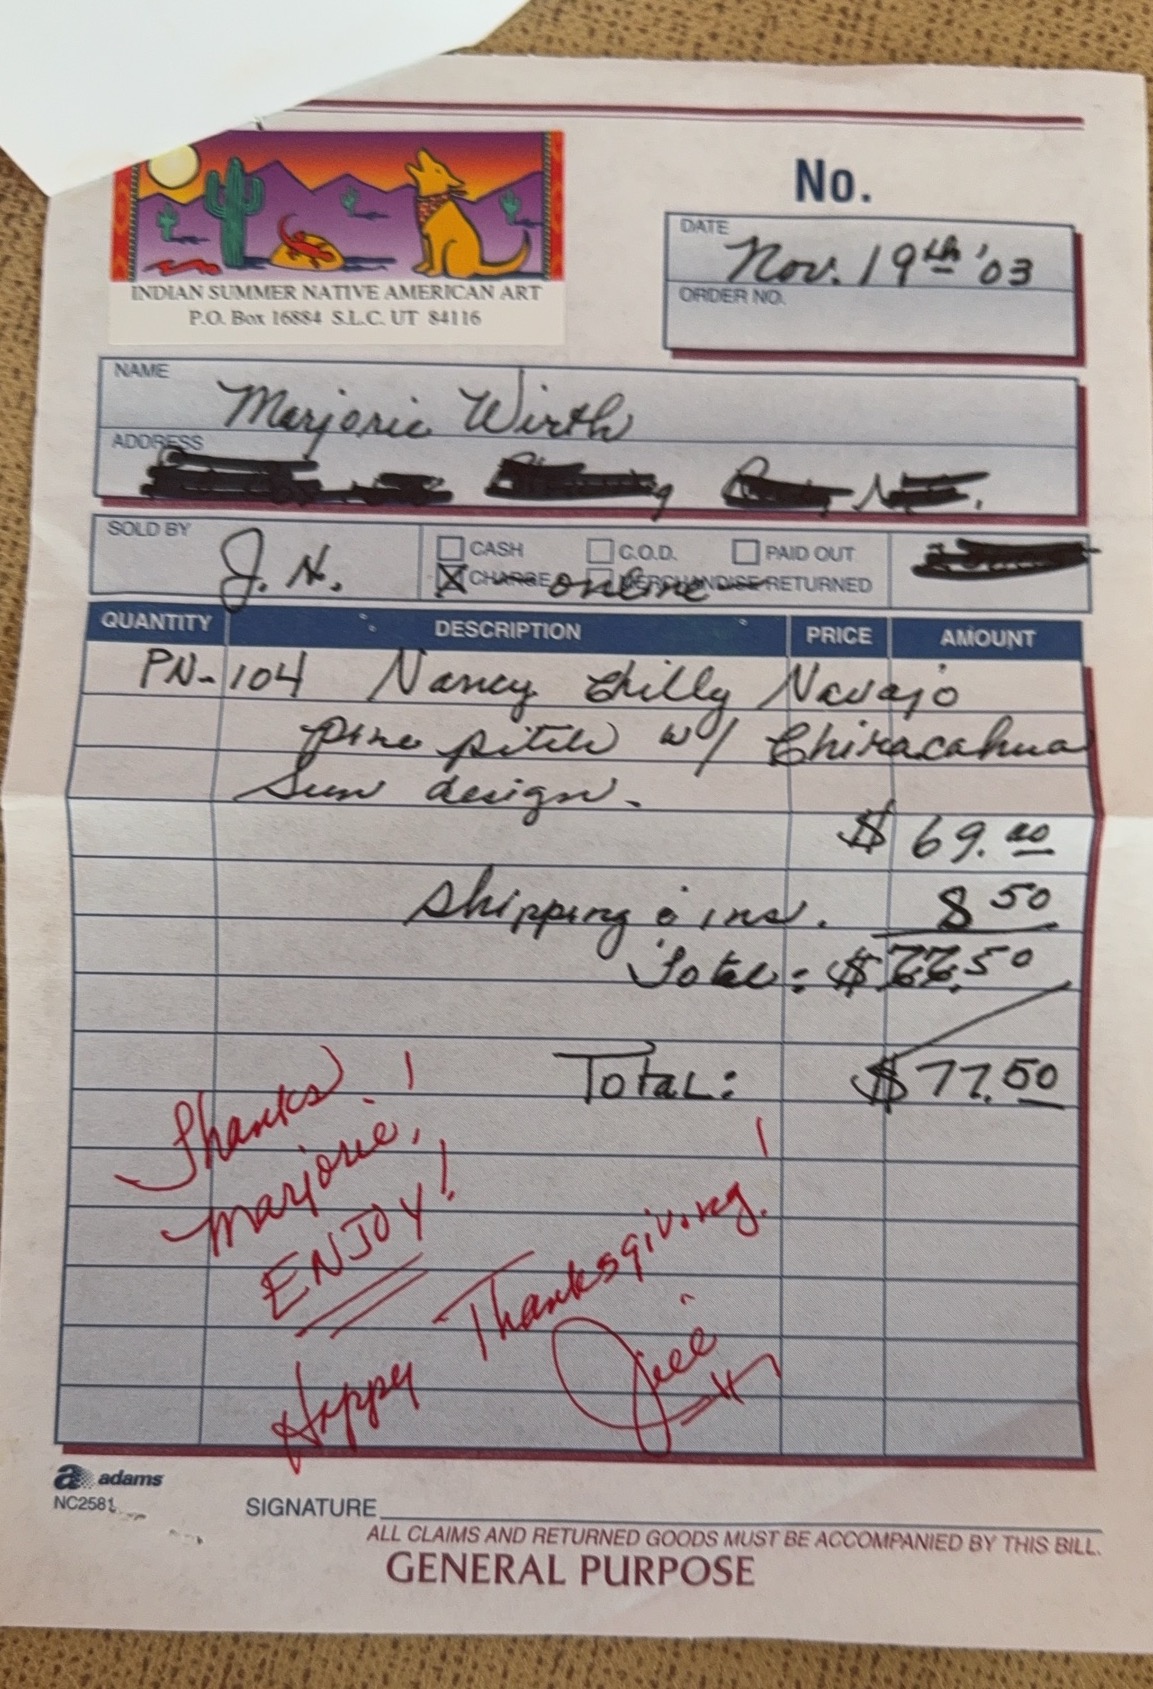 INDIAN SUMMER NATIVE AMERICAN ART
P.O. Box 16884 S.L.C. UT 84116
No.
DATE
Nov. 19th '03
ORDER NO.
NAME
Marjorie Wirth
ADDRESS
SOLD BY
J. H.
CASH C.O.D. PAID OUT
CHARGE online MERCHANDISE RETURNED
QUANTITY DESCRIPTION PRICE AMOUNT
PN-104 Nancy Chilly Navajo
pine pitch w/ Chiracahua
Sun design.
$ 69.00
Shipping & ins. 8 50
Total: $77.50
Total: $77.50
Thanks!
Marjorie,
ENJOY!
Happy Thanksgiving!
adams
NC2581
SIGNATURE
ALL CLAIMS AND RETURNED GOODS MUST BE ACCOMPANIED BY THIS BILL.
GENERAL PURPOSE